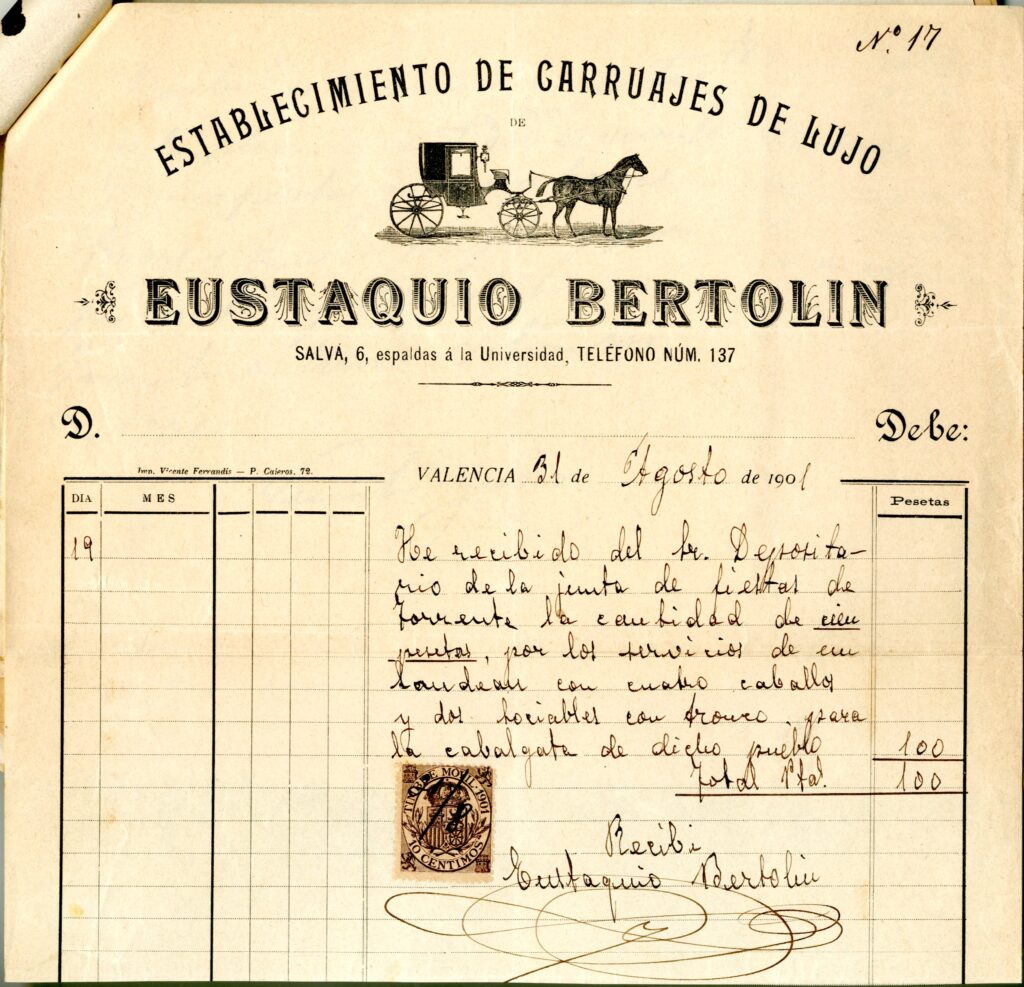 Nº 17
ESTABLECIMIENTO DE CARRUAJES DE LUJO
DE
EUSTAQUIO BERTOLIN
SALVÁ, 6, espaldas á la Universidad, TELÉFONO NÚM. 137
D. Debe:
Imp. Vicente Ferrandis — P. Cajeros, 72.
VALENCIA 31 de Agosto de 1901
DIA MES Pesetas
19 He recibido del Sr. Deposita-
rio de la junta de fiestas de
Torrente la cantidad de cien
pesetas, por los servicios de un
landeau con cuatro caballos
y dos sociables con tronco, para
la cabalgata de dicho pueblo 100
Total Ptas. 100
TIMBRE MOVIL 1901
10 CENTIMOS
Recibi
Eustaquio Bertolin